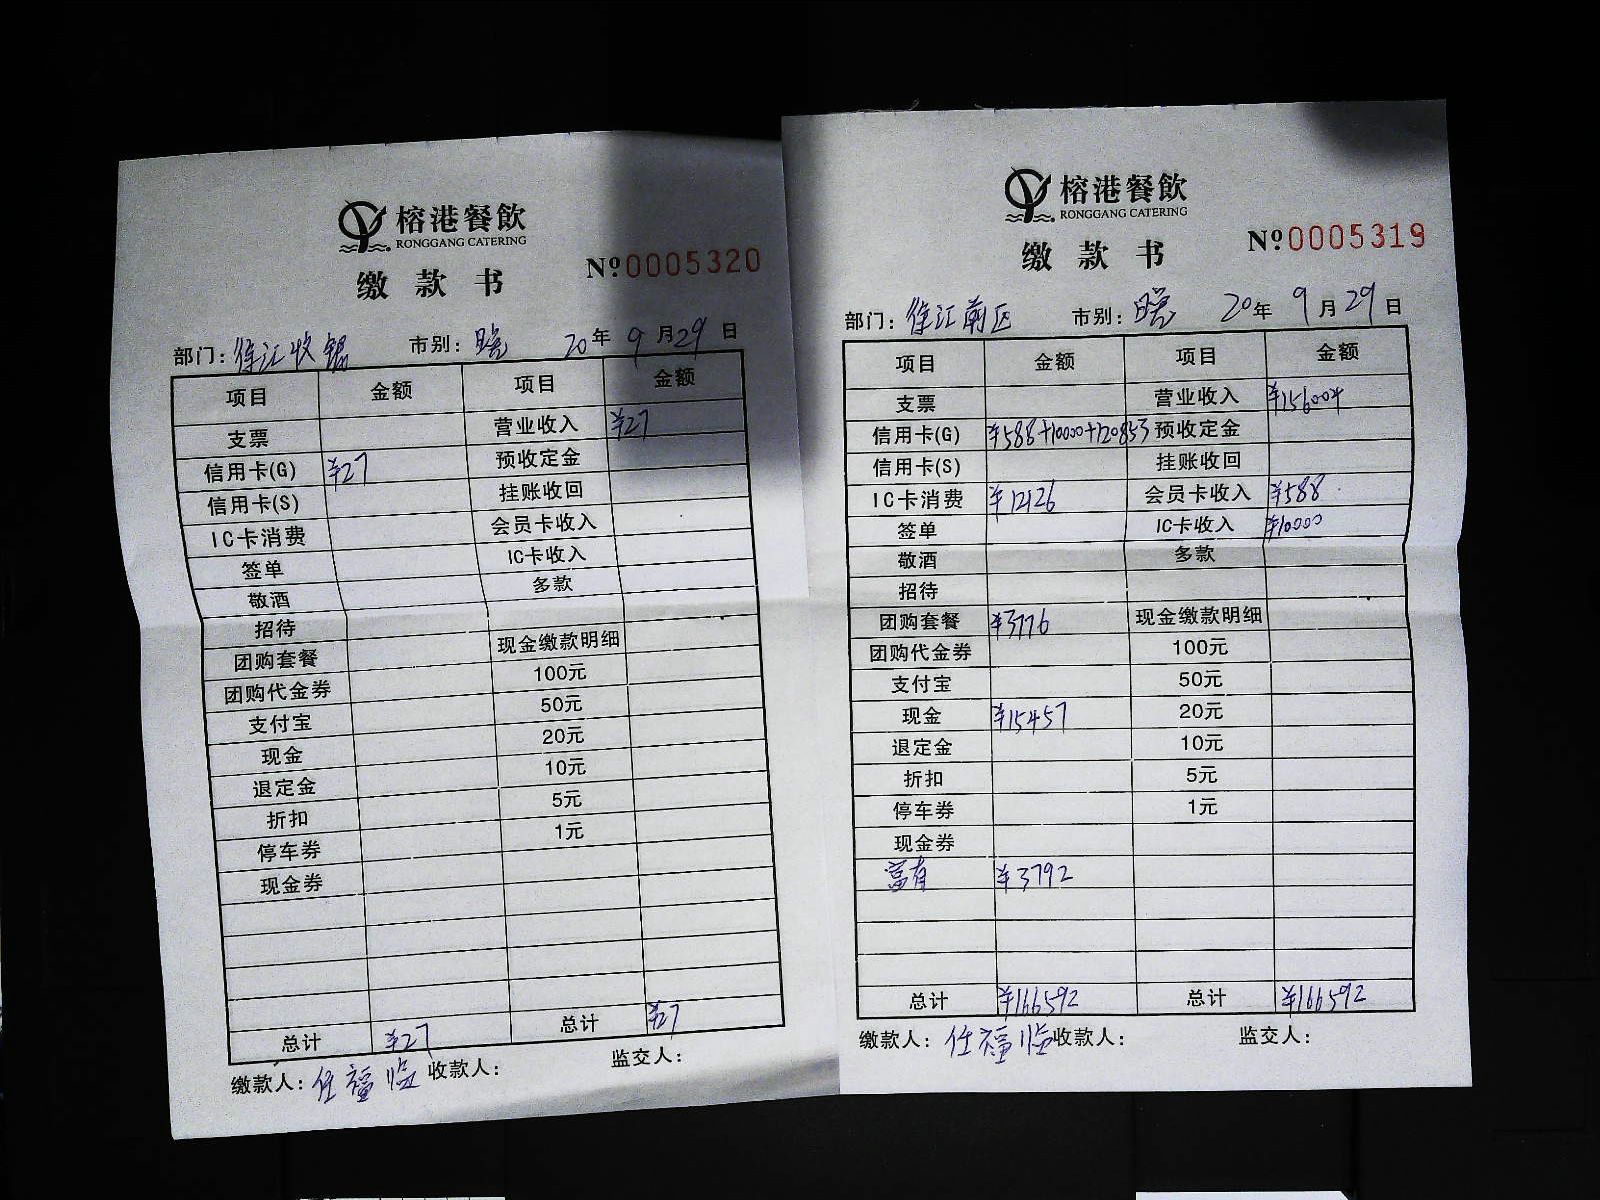 榕港餐飲
RONGGANG CATERING
缴款书
№0005320
部门: 徐汇收银 市别: 晚 20年 9月29日
项目 金额 项目 金额
支票 营业收入 ¥27
信用卡(G) ¥27 预收定金
信用卡(S) 挂账收回
IC卡消费 会员卡收入
签单 IC卡收入
敬酒 多款
招待
团购套餐 现金缴款明细
团购代金券 100元
支付宝 50元
现金 20元
退定金 10元
折扣 5元
停车券 1元
现金券
总计 ¥27 总计 ¥27
缴款人: 任福临 收款人: 监交人:
榕港餐飲
RONGGANG CATERING
缴款书
№0005319
部门: 徐汇前区 市别: 晚 20年 9月29日
项目 金额 项目 金额
支票 营业收入 ¥156004
信用卡(G) ¥588+10000+120853 预收定金
信用卡(S) 挂账收回
IC卡消费 ¥12126 会员卡收入 ¥588
签单 IC卡收入 ¥10000
敬酒 多款
招待
团购套餐 ¥3776 现金缴款明细
团购代金券 100元
支付宝 50元
现金 ¥15457 20元
退定金 10元
折扣 5元
停车券 1元
现金券
富有 ¥3792
总计 ¥166592 总计 ¥166592
缴款人: 任福临 收款人: 监交人: